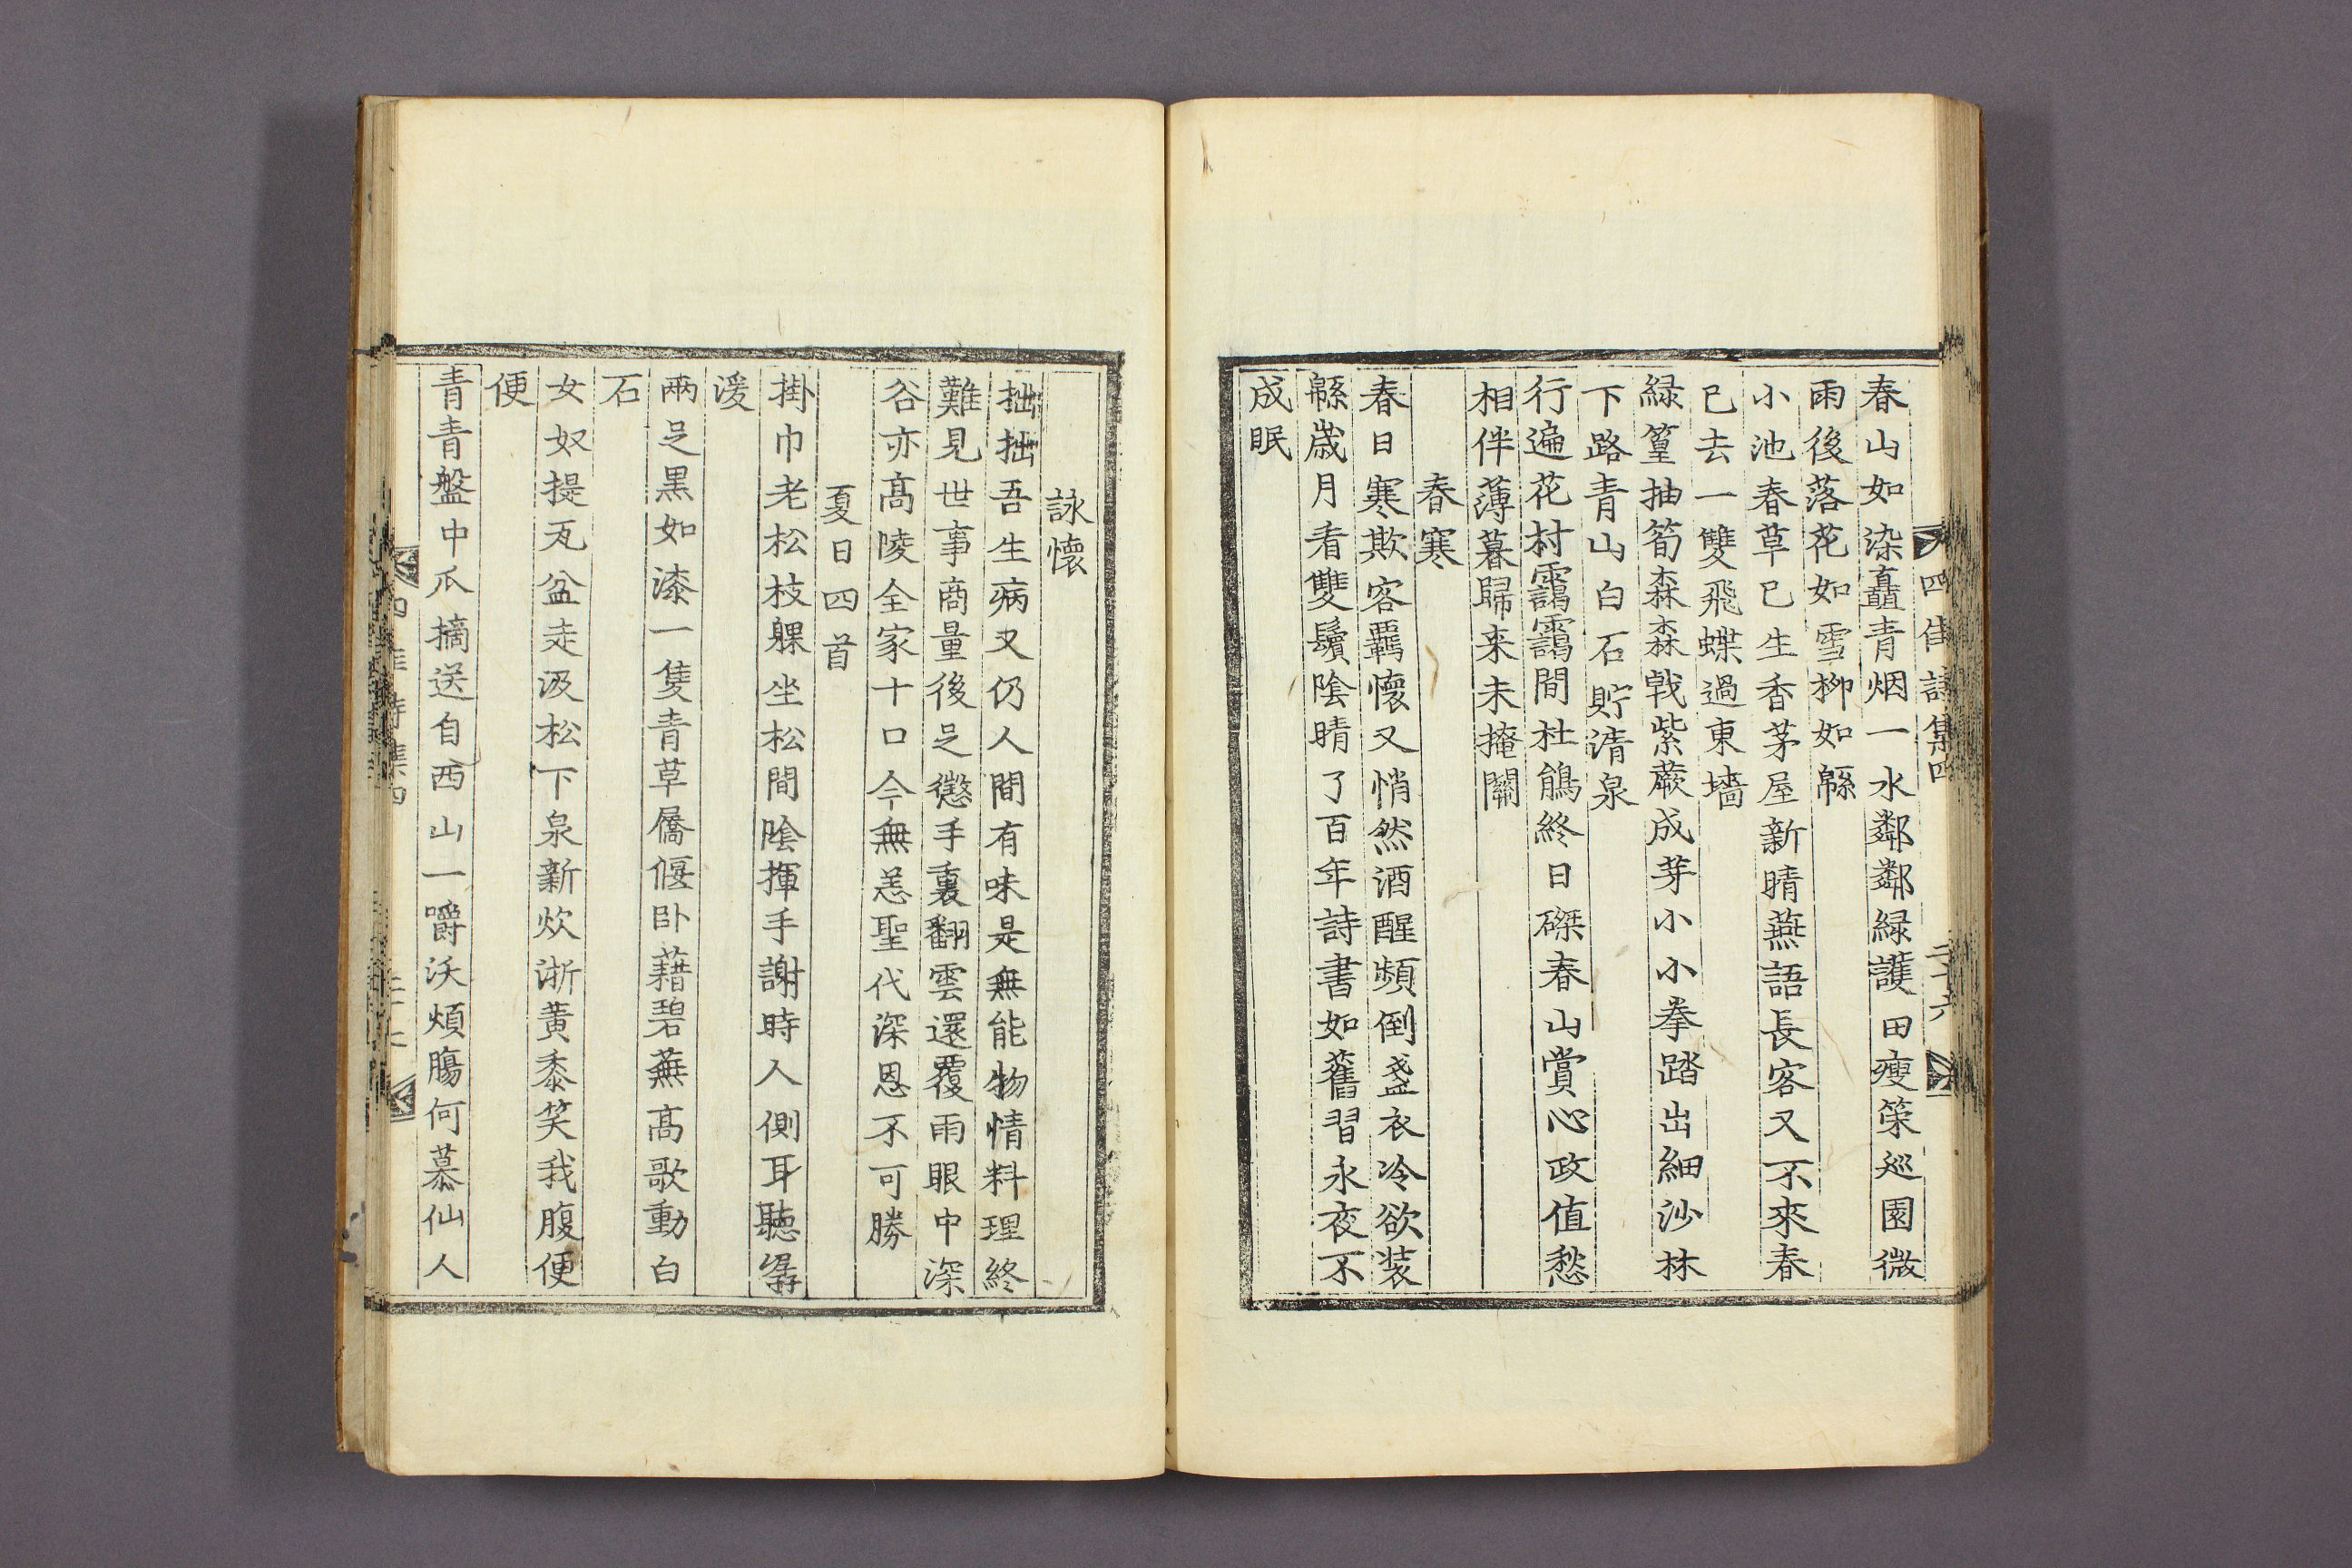 四佳詩集四
二十六
春山如染矗青烟一水鄰鄰緑護田瘦筞巡園微
雨後落花如雪柳如緜
小池春草已生香茅屋新晴燕語長客又不來春
已去一雙飛蝶過東墻
緑篁抽筍森森戟紫蕨成芽小小拳踏出細沙林
下路青山白石貯清泉
行遍花村靄靄間杜鵑終日磔春山賞心政值愁
相伴薄暮歸来未掩關
春寒
春日寒欺客羇懷又悄然酒醒頻倒盞衣冷欲装
緜歲月看雙鬢陰晴了百年詩書如舊習永夜不
成眠
詠懷
拙拙吾生病又仍人間有味是無能物情料理終
難見世事商量後足懲手裏翻雲還覆雨眼中深
谷亦高陵全家十口今無恙聖代深恩不可勝
夏日四首
掛巾老松枝躶坐松間陰揮手謝時人側耳聽潺
湲
兩足黒如漆一隻青草屩偃卧藉碧蕪高歌動白
石
女奴提瓦盆走汲松下泉新炊淅黄黍笑我腹便
便
青青盤中爪摘送自西山一嚼沃煩膓何慕仙人